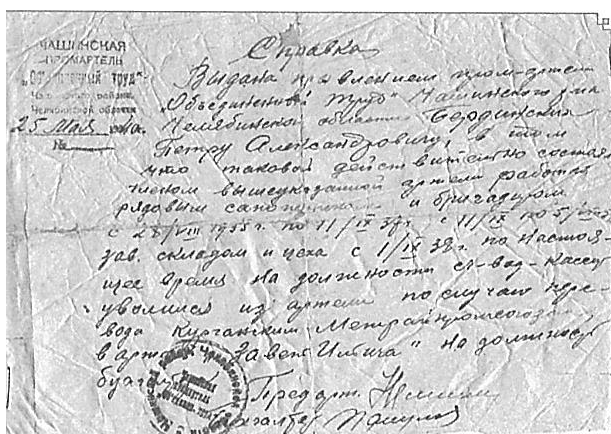 ЧАШИНСКАЯ
ПРОМАРТЕЛЬ
"Объединенный труд"
Чашинского района,
Челябинской области
25 мая
№
Справка
Выдана правлением пром-артели
"Объединенный труд" Чашинского р-на
Челябинской области Бердинских
Петру Александровичу, в том
что таковой действительно состоял
членом вышеуказанной артели работал
рядовым сапожником и бригадиром
с 28/VIII 1935 г. по 11/IX 37 г. с 11/IX по
зав. складом и цеха с 1/IX 38 г. по настоя-
щее время на должности
уволился из артели по случаю пере-
вода Курганским Межрайпромсоюзом
в артель "Завет Ильича" на должность
Пред. арт.
Бухгалтер